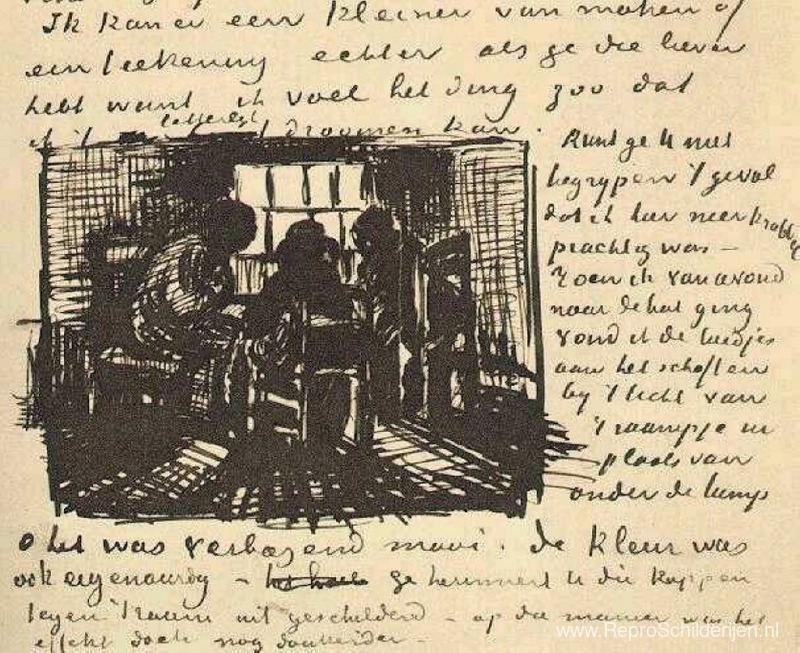 Ik kan er een kleiner van maken of
een teekening echter als ge die liever
hebt want ik voel het ding zoo dat
ik 't letterlijk droomen kan.
Kunt ge U niet
begrypen 't geval
dat ik hier neerkrabbel
prachtig was –
Toen ik van avond
naar de hut ging
vond ik de luidjes
aan het schoften
by 't licht van
't raampje in
plaats van
onder de lamp
o het was verbazend mooi. de kleur was
ook eigenaardig – ge herinnert U die koppen
tegen 't raam uit geschilderd – op die manier was het
effekt doch nog donkerder –
www.ReproSchilderijen.nl